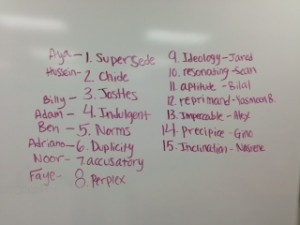 Aya - 1. Supersede
Hussein - 2. Chide
Billy - 3. Jostles
Adam - 4. Indulgent
Ben - 5. Norms
Adriano - 6. Duplicity
Noor - 7. accusatory
Faye - 8. Perplex
9. Ideology - Janad
10. resonating - Sean
11. aptitute - Bilal
12. reprimand - Yasman B.
13. Impeccable - Alex
14. Precipice - Gine
15. Inclination -